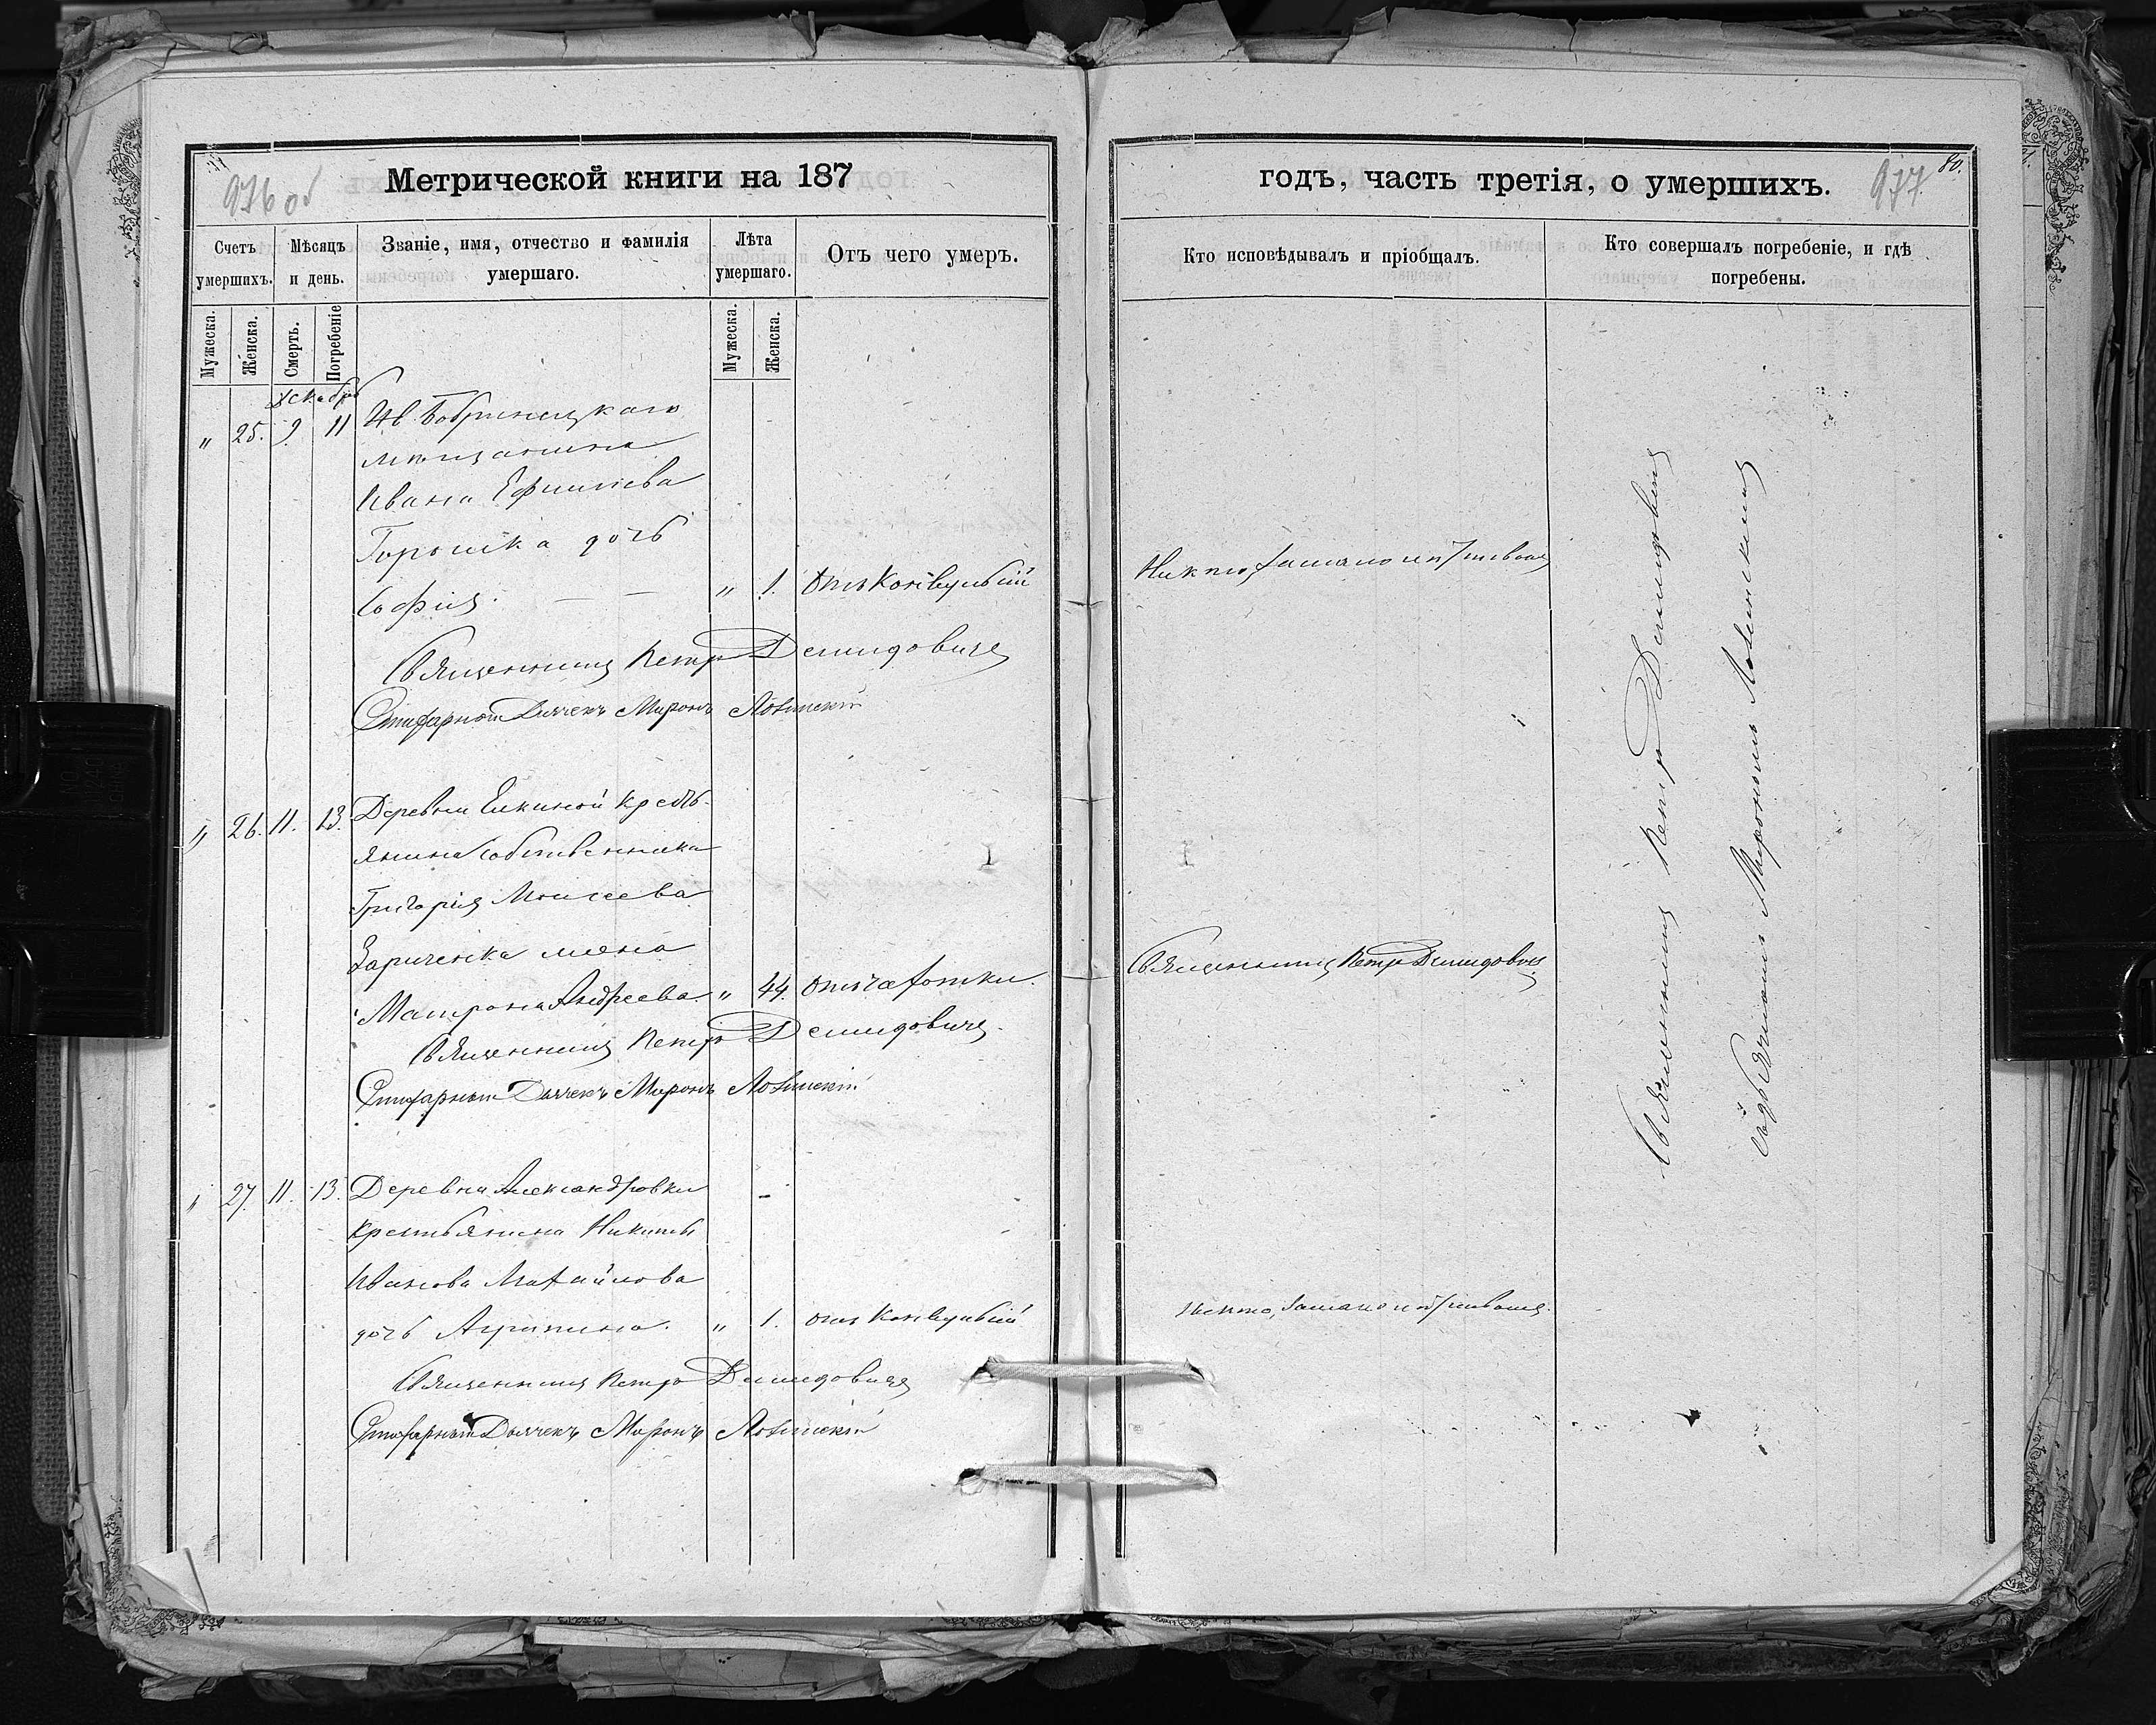 976 об
Метрической книги на 187
Счетъ умершихъ.
Мѣсяцъ и день.
Званіе, имя, отчество и фамилія умершаго.
Лѣта умершаго.
Отъ чего умеръ.
Мужеска.
Женска.
Смерть.
Погребеніе
Мужеска.
Женска.
Декабрь
" 25. 9. 11
Бобринецкаго
мѣщанина
Ивана Ефимова
Горошка дочь
Софія. — — " 1. Отъ Конвульсій
Священникъ Петръ Демидовичъ
Дьячекъ Миронъ
" 26. 11. 13. Деревни Елкиной кресть-
янина собственника
Григорія Моисеева
Зариченка жена
Матрона Андреева " 44. Отъ чахотки.
Священникъ Петръ Демидовичъ.
Дьячекъ Миронъ
" 27. 11. 13. Деревни Александровки
крестьянина Никиты
Иванова Михайлова
дочь Агрипина. " 1. отъ Конвульсій
Священникъ Петръ Демидовичъ
Дьячекъ Миронъ
годъ, часть третія, о умершихъ. 977. 80.
Кто исповѣдывалъ и пріобщалъ.
Кто совершалъ погребеніе, и гдѣ погребены.
Никто,
Священникъ Петръ Демидовичъ
никто,
Священникъ Петръ Демидовичъ
Мирономъ